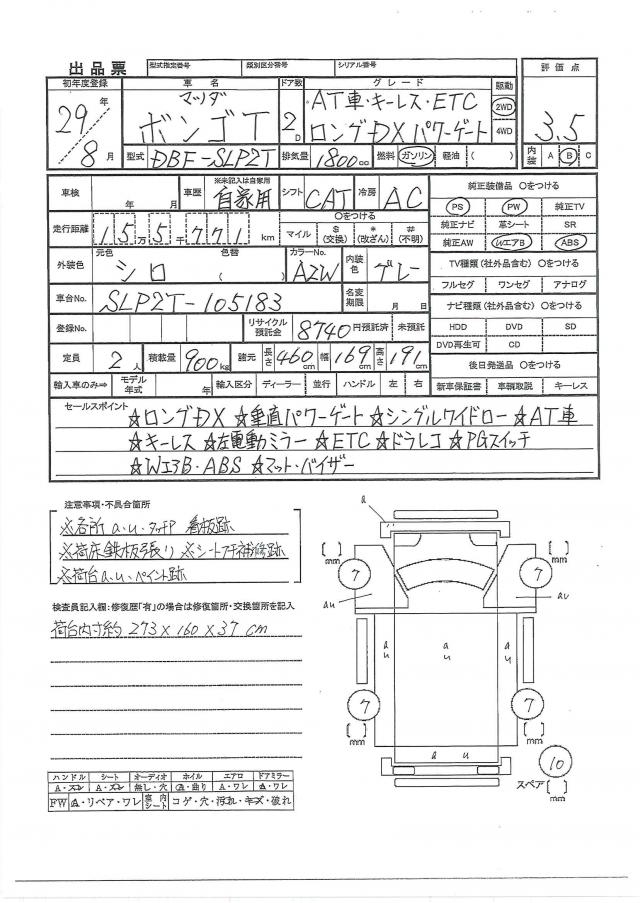 出品票 型式指定番号 類別区分番号 シリアル番号
初年度登録 車名 ドア数 グレード 駆動 評価点
29年 マツダ 2D AT車・キーレス・ETC 2WD
8月 ボンゴT ロングDX パワーゲート 4WD 3.5
型式 DBF-SLP2T 排気量 1800cc 燃料 ガソリン 軽油 ( ) 内装 A B C
車検 年 月 車歴 ※未記入は自家用 自家用 シフト CAT 冷房 AC 純正装備品 〇をつける
PS PW 純正TV
走行距離 15万5千771km 〇をつける
マイル $(交換) *(改ざん) #(不明)
純正ナビ 革シート SR
純正AW WエアB ABS
外装色 元色 シロ 色替 ( ) カラーNo. A2W 内装色 グレー
TV種類(社外品含む) 〇をつける
フルセグ ワンセグ アナログ
車台No. SLP2T-105183 名変期限 月 日
ナビ種類(社外品含む) 〇をつける
登録No. リサイクル預託金 8740円預託済 未預託
HDD DVD SD
DVD再生可 CD
定員 2人 積載量 900kg 諸元 長さ 460cm 幅 169cm 高さ 191cm
後日発送品 〇をつける
輸入車のみ⇒ モデル年式 年 輸入区分 ディーラー 並行 ハンドル 左 右 新車保証書 車輌取説 キーレス
セールスポイント
☆ロングDX ☆垂直パワーゲート ☆シングルワイドロー ☆AT車
☆キーレス ☆左電動ミラー ☆ETC ☆ドラレコ ☆PGスイッチ
☆WエアB・ABS ☆マット・バイザー
注意事項・不具合箇所
※各所a.u.タッチP 看板跡
※荷床鉄板張り ※シートフチ補修跡
※荷台a.u.ペイント跡
検査員記入欄:修復歴「有」の場合は修復箇所・交換箇所を記入
荷台内寸約 273×160×37cm
a
[ ] mm 7 7 [ ] mm
au au
a u
a u
a u
7 7
[ ] mm [ ] mm
a u
10
スペア [ ] mm
ハンドル シート オーディオ ホイル エアロ ドアミラー
A・スレ A・スレ 無し・穴 A・曲り A・ワレ A・ワレ
FW A・リペア・ワレ 室内シート コゲ・穴・汚れ・キズ・破れ